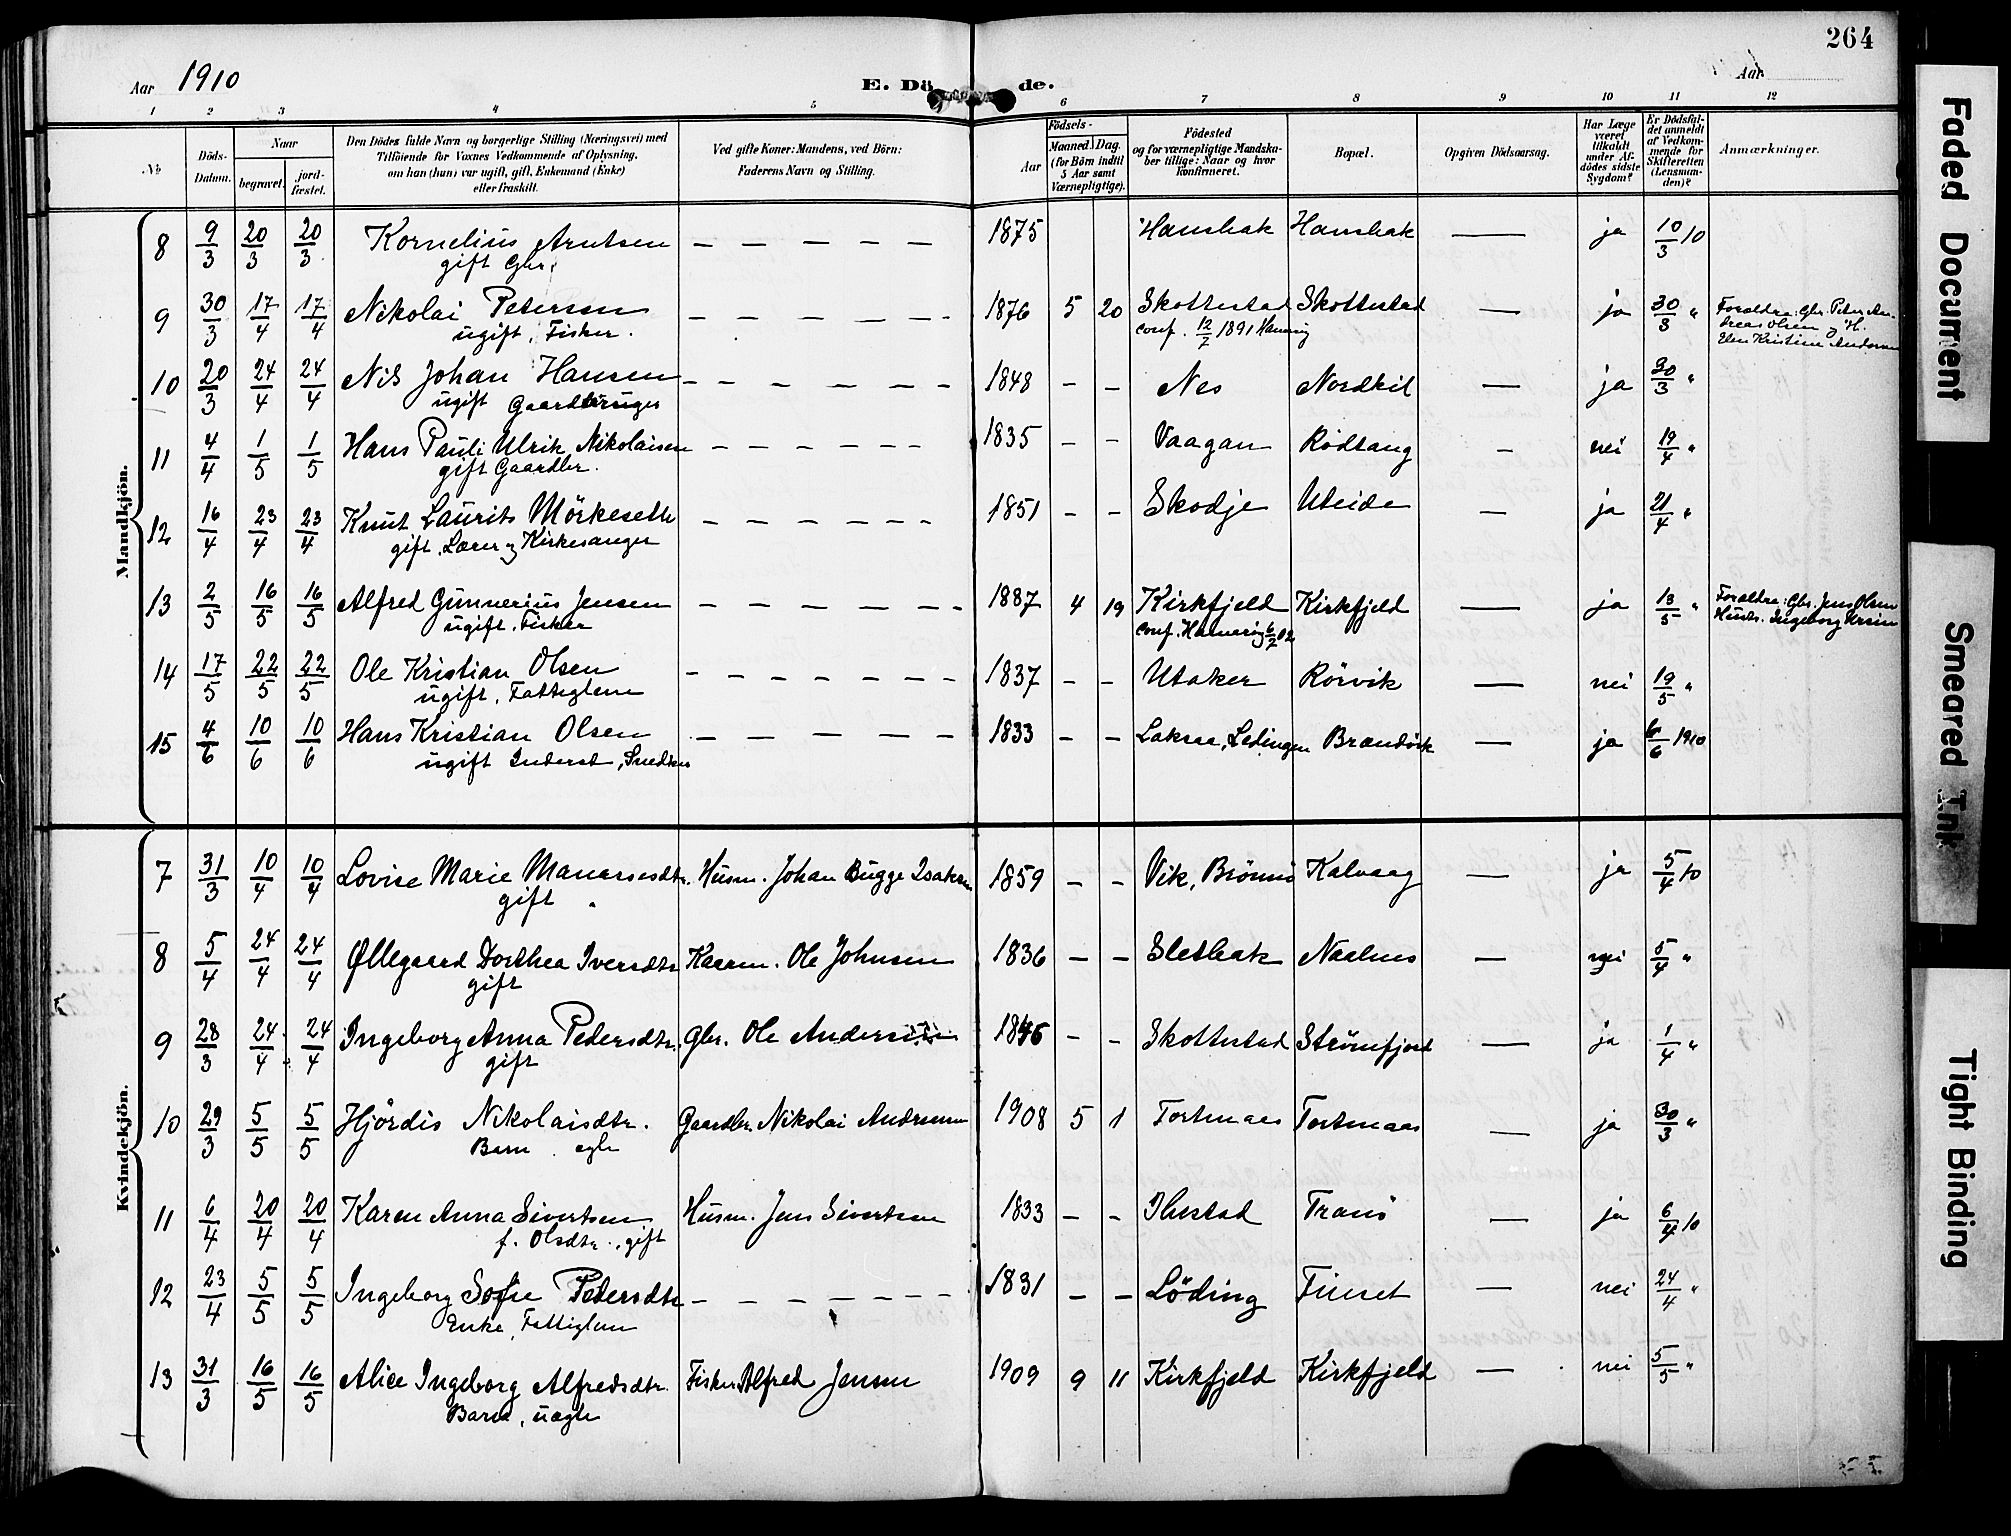 264
Aar 1910 E. Dö de. Aar
1 2 3 4 5 6 7 8 9 10 11 12
No. Döds-Datum. Naar begravet. jord-fæstet. Den Dödes fulde Navn og borgerlige Stilling (Næringsvei) med Tilföiende for Voxnes Vedkommende af Oplysning, om han (hun) var ugift, gift, Enkemand (Enke) eller fraskilt. Ved gifte Koner: Mandens, ved Börn: Faderens Navn og Stilling. Födsels- Aar Maaned Dag. (for Börn indtil 5 Aar samt Værnepligtige). Födested og for værnepligtige Mandskaber tillige: Naar og hvor konfirmeret. Bopæl. Opgiven Dödsaarsag. Har Læge været tilkaldt under Afdödes sidste Sygdom? Er Dödsfaldet anmeldt af Vedkommende for Skifteretten (Lensmanden)? Anmærkninger.
Mandkjön.
8 9/3 20/3 20/3 Kornelius Arntsen – – – – – – 1875 Hamsbak Hamsbak — ja 10/3 10
gift Gbr.
9 30/3 17/4 17/4 Nikolai Petersen – – – – – – 1876 5 20 Skottestad Skottestad — ja 30/3 " Forældre: Gbr. Peter An-
ugift, Fisker. conf. 12/7 1891 Hamarøy dreas Olsen og H.
Elen Kristine Andersen
10 20/3 24/4 24/4 Nils Johan Hansen – – – – – – – 1848 – – Nes Nordkil — ja 30/3 "
ugift Gaardbruger
11 4/4 1/5 1/5 Hans Pauli Ulrik Nikolaisen – – – – – – 1835 – – Vaagan Rödtang – nei 19/4 "
gift Gaardbr.
12 16/4 23/4 23/4 Knut Laurits Mörkeseth – – – – – – 1851 – – Skodje Uteide — ja 21/4 "
gift. Lærer og Kirkesanger
13 2/5 16/5 16/5 Alfred Gunnerius Jensen – – – – – – 1887 4 19 Kirkfjeld Kirkfjeld — ja 13/5 " Forældre: Gbr. Jens Olsen
ugift. Fisker conf. Hamarøy 6/7 02 Hustr. Ingeborg
14 17/5 22/5 22/5 Ole Kristian Olsen – – – – – – – 1837 – – Utaker Rörvik — nei 19/5 "
ugift, Fattiglem
15 4/6 10/6 10/6 Hans Kristian Olsen – – – – – – 1833 – – Laksaa, Lödingen Brændvik — ja 6/6 1910
ugift Inderst, Snedker
Kvindekjön.
7 31/3 10/4 10/4 Lovise Marie Manassesdtr. Husm. Johan Bugge Isaksen 1859 – – Vik, Brönnö Kalvaag — ja 5/4 10
gift
8 5/4 24/4 24/4 Øllegaard Dorthea Iversdtr Kaarm. Ole Johnsen 1836 – – Sletbak Naalnes — nei 5/4 "
gift
9 28/3 24/4 24/4 Ingeborg Anna Pedersdtr. Gbr. Ole Andersen 1846 – – Skottestad Strömfjord — ja 1/4 "
gift
10 29/3 5/5 5/5 Hjördis Nikolaisdtr. Gaardbr. Nikolai Andersen 1908 5 1 Tortenaas Tortenaas — ja 30/3 "
Barn. egte
11 6/4 20/4 20/4 Karen Anna Sivertsen Husm. Jens Sivertsen 1833 – – Ilustad Tranö — ja 6/4 10
f. Olsdtr., gift
12 23/4 5/5 5/5 Ingeborg Sofie Pedersdtr – – – – – – – 1831 – – Löding Finset — nei 24/4 "
Enke, Fattiglem
13 31/3 16/5 16/5 Alice Ingeborg Alfredsdtr. Fisker Alfred Jensen 1909 9 11 Kirkfjeld Kirkfjeld — nei 5/5 "
Barn, uægte
Faded Document
Smeared Ink
Tight Binding